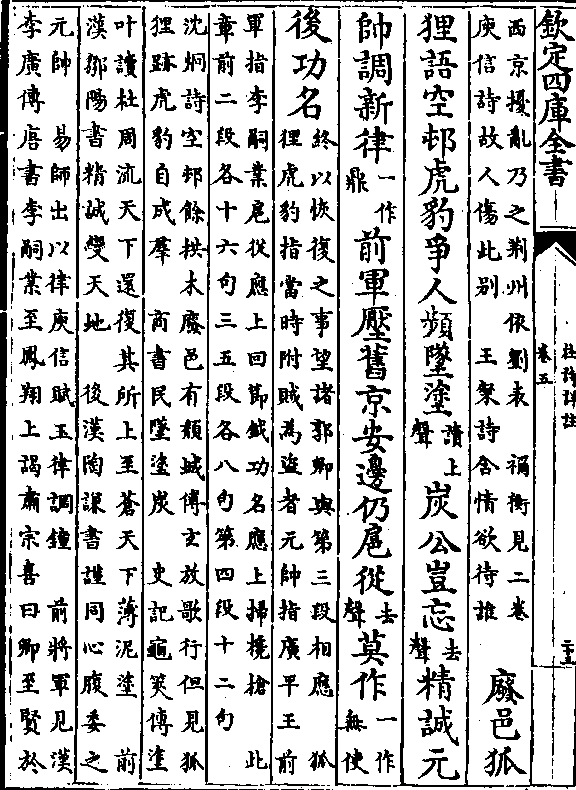 欽定四庫全書
杜詩詳註
卷五
西京擾亂乃之荆州依劉表　禰衡見二卷
庾信詩故人傷此别　王粲詩含情欲待誰
廢邑狐
狸語空邨虎豹爭人頻墜塗讀上聲炭公豈忘去聲精誠元
帥調新律一作鼎前軍壓舊京安邊仍扈從去聲莫作一作無使
後功名
終以恢復之事望諸郭卿與第三段相應　狐
狸虎豹指當時附賊為盗者元帥指廣平王前
軍指李嗣業扈從應上回節鉞功名應上掃欃槍　此
章前二段各十六句三五段各八句第四段十二句
沈炯詩空邨餘拱木廢邑有頹城傅玄放歌行但見狐
狸跡虎豹自成羣　商書民墜塗炭　史記龜筴傳塗
叶讀杜周流天下還復其所上至蒼天下薄泥塗　前
漢鄒陽書精誠變天地　後漢陶謙書謹同心腹委之
元帥　易師出以律庾信賦玉律調鐘　前將軍見漢
李廣傳唐書李嗣業至鳳翔上謁肅宗喜曰卿至賢於